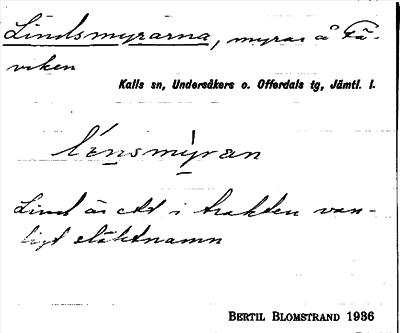 Lindsmyrarna, myrar å Få-
viken
Kalls sn, Undersåkers o. Offerdals tg, Jämtl. l.
Linsmyran
Lind är ett i trakten van-
ligt släktnamn
BERTIL BLOMSTRAND 1936